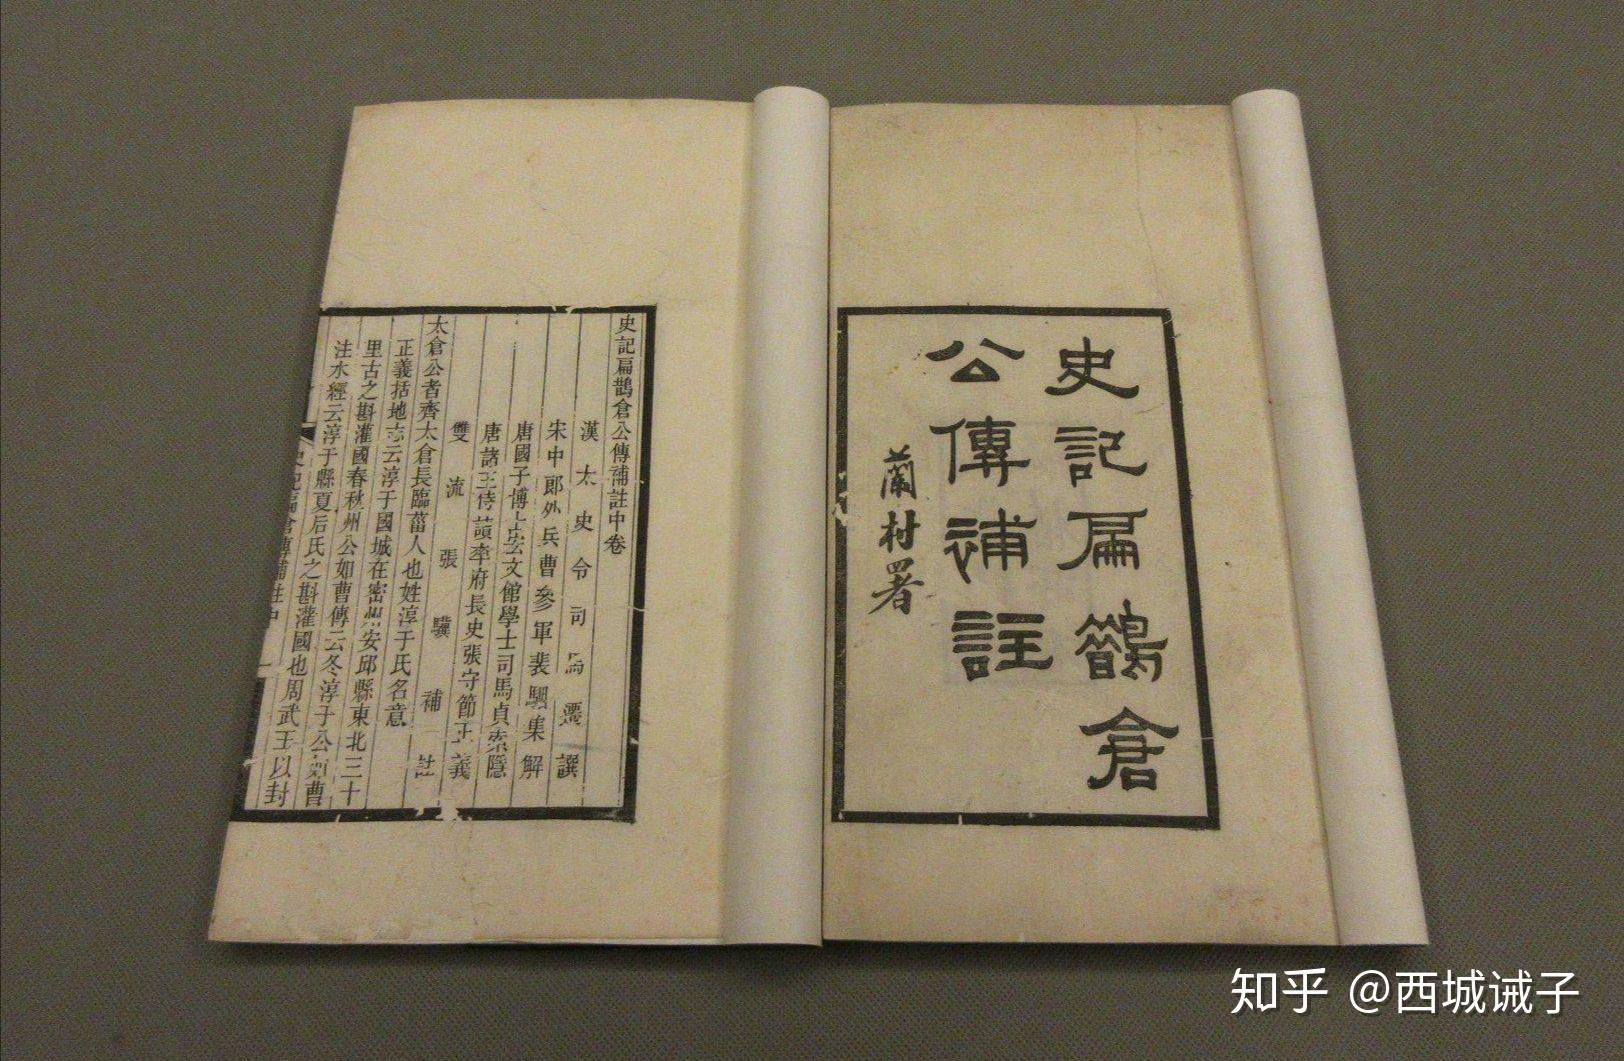 史記扁鵲倉
公傳補註
蘭村署
史記扁鵲倉公傳補註中卷
漢太史令司馬遷譔
宋中郎外兵曹參軍裴駰集解
唐國子博士弘文館學士司馬貞索隱
唐諸王侍讀率府長史張守節正義
雙流張驥補註
太倉公者齊太倉長臨菑人也姓淳于氏名意
正義括地志云淳于國城在密州安邱縣東北三十
里古之斟灌國春秋州公如曹傳云冬淳于公如曹
注水經云淳于縣夏后氏之斟灌國也周武王以封
史記扁倉傳補註中
知乎 @西城诫子